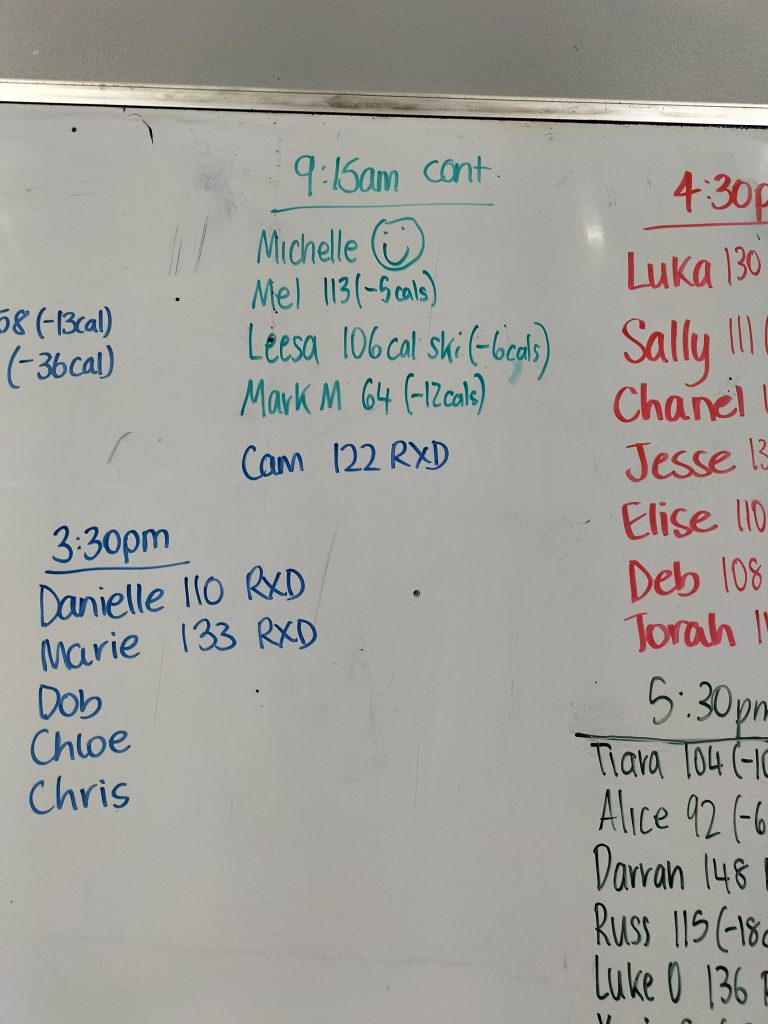 (-13cal)
(-36cal)
9:15am cont.
Michelle
Mel 113 (-5cals)
Leesa 106cal ski (-6cals)
Mark M 64 (-12cals)
Cam 122 RXD
3:30pm
Danielle 110 RXD
Marie 133 RXD
Dob
Chloe
Chris
4:30p
Luka 130
Sally 111 (
Chanel
Jesse 13
Elise 110
Deb 108
Torah
5:30pm
Tiara 104 (-10
Alice 92 (-6
Darran 148
Russ 115 (-18c
Luke O 136